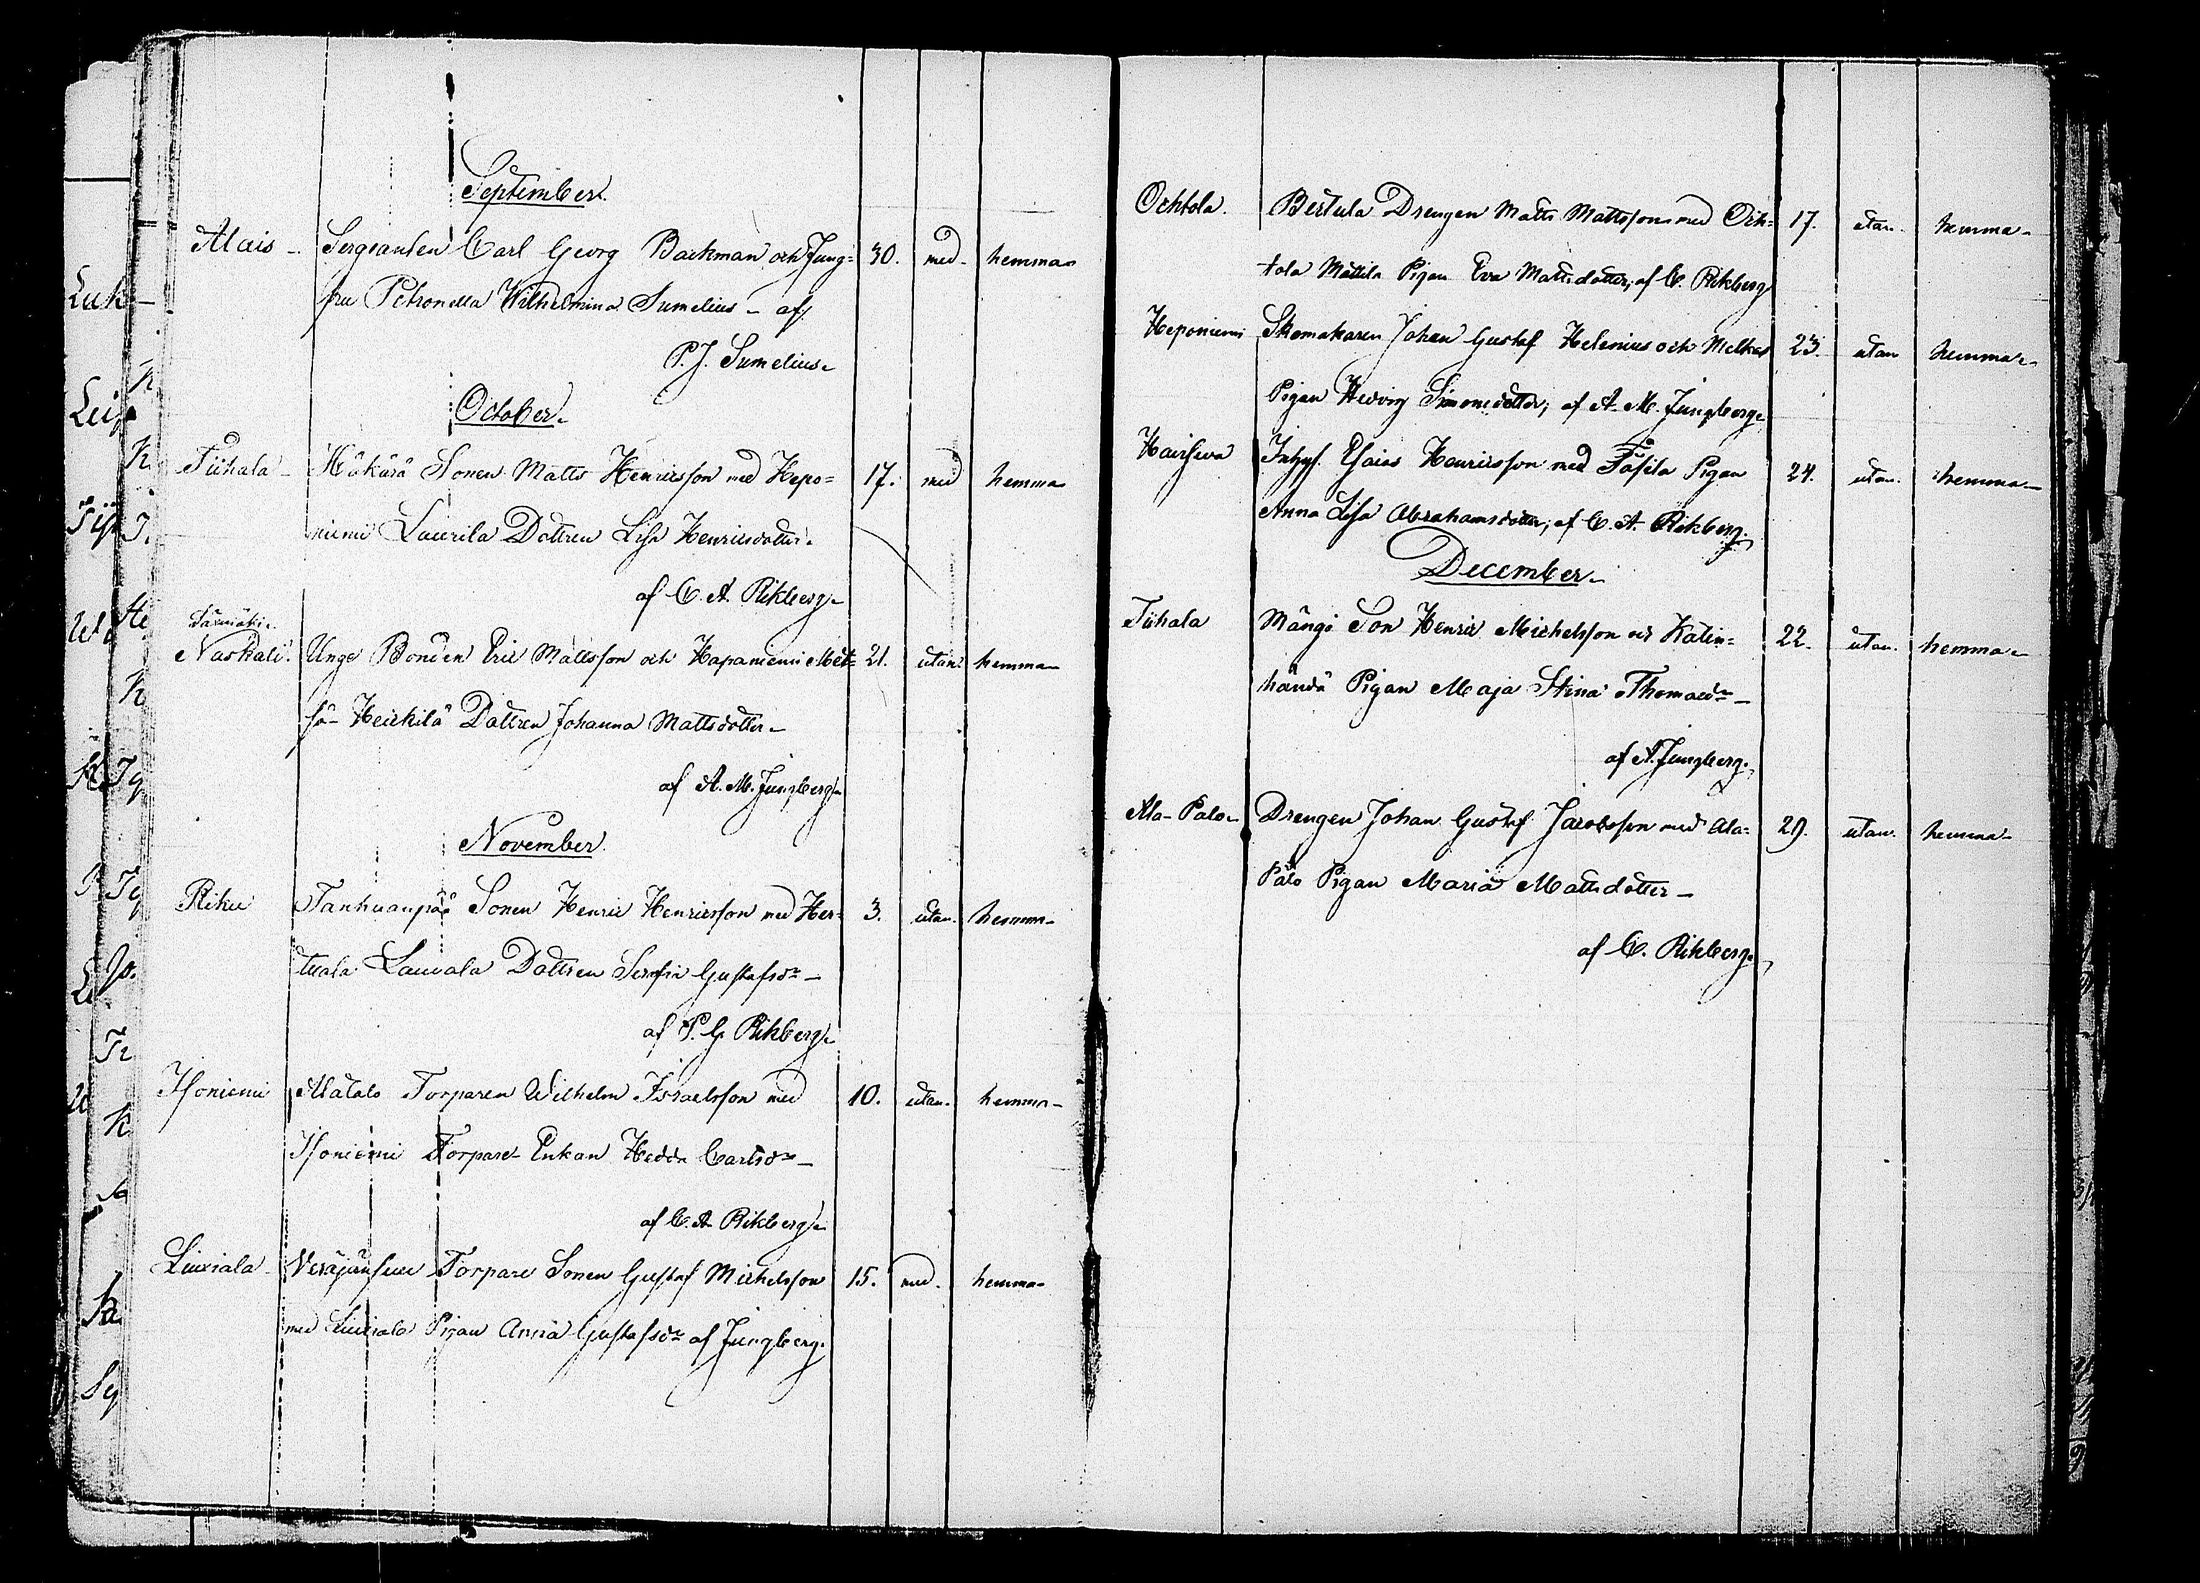 September.
Alais - Sergeanten Carl Georg Backman och Jung= 30. med. hemma
fru Petronella Wilhelmina Sumelius - af
P. J. Sumelius.
October.
Tiihala - Häkärä Sonen Matts Henricsson med Hepo= 17. med hemma
niemi Laurila Dottren Lisa Henricsdotter.
af C. A. Rikberg.
Naskali. Unge Bonden Eric Mattsson och Hapaniemi Mat= 21. utan hemma
Heickilä Dottren Johanna Mattsdotter.
af A. M. Jungberg.
November.
Riku Tanhuanpää Sonen Henric Henricsson med Her= 3. utan. hemma
ttuala Lauvala Dottren Serafia Gustafsdr -
af P. G. Rikberg.
Isoniemi Alatalo Torparen Wilhelm Israelsson med 10. utan. hemma
Isoniemi Torpare Enkan Hedda Carlsdr -
af C. A. Rikberg.
Liuxiala - Torpare Sonen Gustaf Michelsson 15. med. hemma
med Liuxiala Pigan Anna Gustafsdr af Jungberg.
Ochtola. Bertula Drengen Matts Mattsson med Och= 17. utan. hemma
tola Mattila Pigan Eva Mattsdotter; af C. Rikberg
Heponiemi Skomakaren Johan Gustaf Helenius och 23. utan hemma
Pigan Hedvig Simonsdotter; af A. M. Jungberg
Esaias Henricsson med Pigan 24. utan. hemma
Anna Lisa Abrahamsdotter; af C. A. Rikberg.
December.
Tiihala Mångö Son Henric Michelsson och Katin= 22. utan. hemma
händä Pigan Maja Stina Thomasdr -
af A. Jungberg.
Ala-Palo Drengen Johan Gustaf Jacobsson med Ala= 29. utan. hemma
Palo Pigan Maria Mattsdotter -
af C. Rikberg.